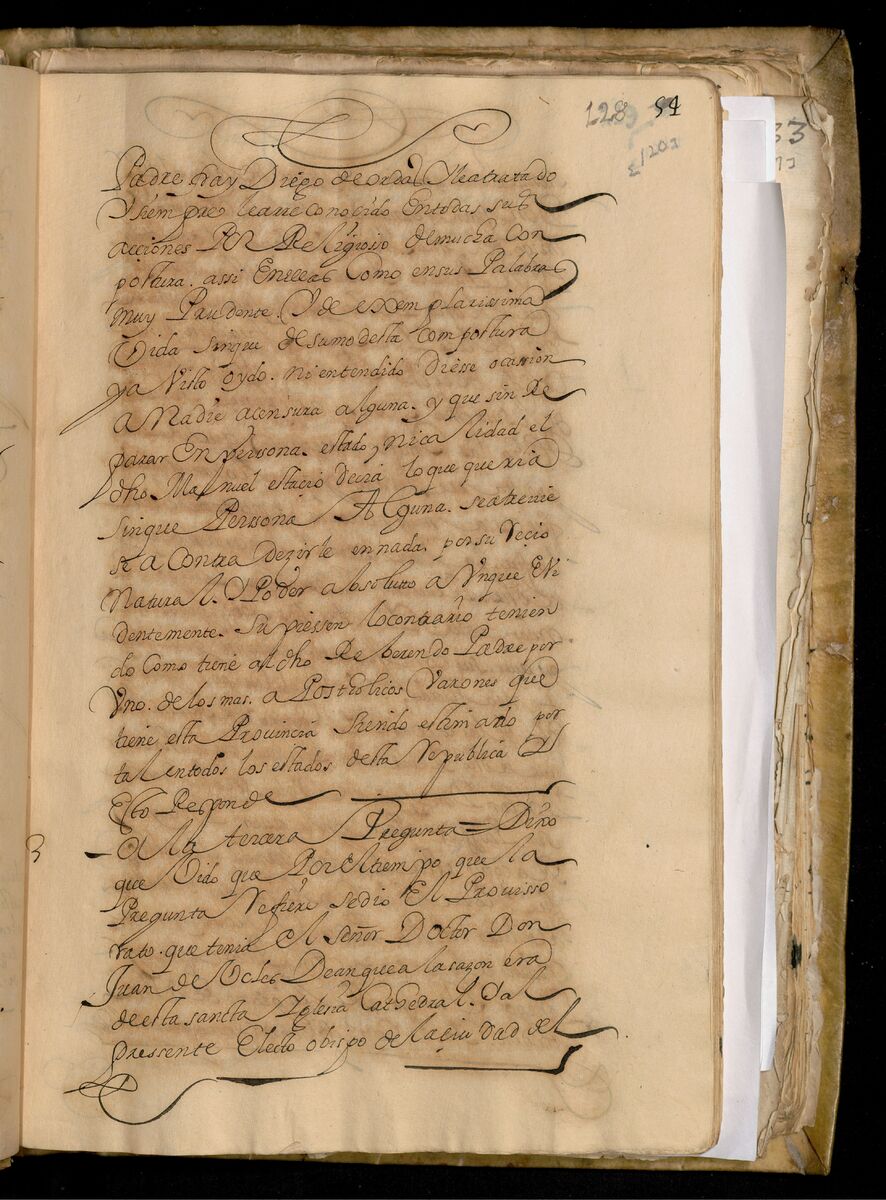 128 54
Padre fray Diego de ordas Y le a tratado
Y siempre le a rreconocido En todas sus
acciones Por Religiosso de mucha con
postura. assi En ellas Como en sus Palabras
muy Prudente. Y de exemplarissima
Vida sin que de su modesta Compostura
ya Visto oydo. ni entendido Diesse ocassion
a Nadie a censura alguna. y que sin Re
parar En perssona. estado, ni calidad el
dho. Manuel estacio decia lo que queria
sin que Perssona Alguna. se atreuie
se a Contra dezirle en nada. por su recio
Natural. Y Poder absolutto aVnque Evi
dentemente. Supiessen lo contrario tenien
do Como tiene al dho Reberendo Padre por
Vno. de los mas. aPostholicos Varones que
tiene esta Prouincia siendo estimado por
tal en todos los estados desta Republica Y
Esto Responde
3
A la tercera Pregunta = Dixo
que Vido que Por el tiempo que la
Pregunta Refiere se dio El Prouisso
rato. que tenia el señor Doctor Don
Juan de Ocles Dean que a la sazon era
de esta sancta Yglesia Cathedral. Y al
pressente Electo obispo de la ciudad del